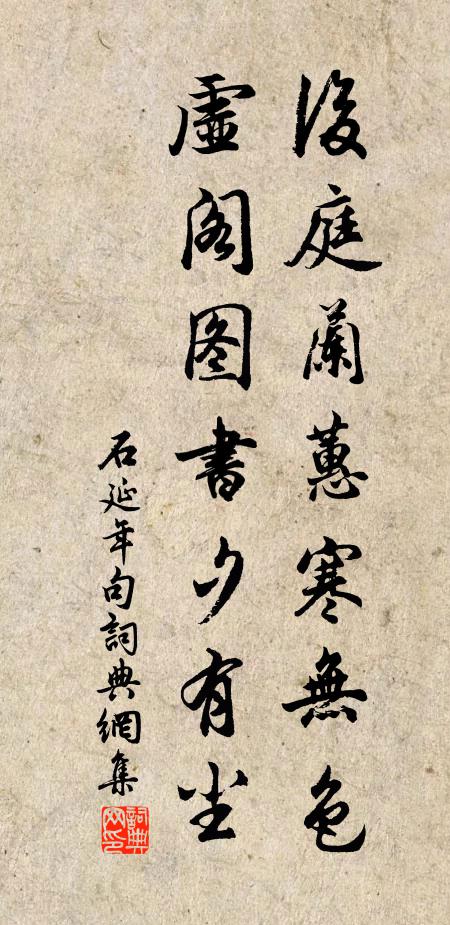 後庭蘭蕙寒無色
虛阁图書夕有尘
石延年句詞典網集
詞典网印